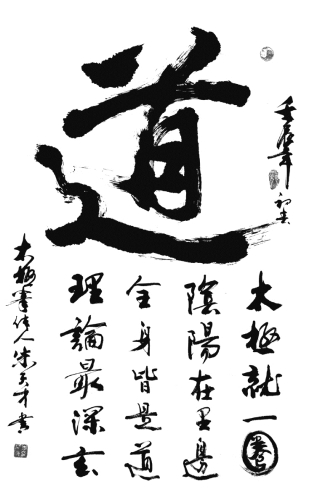 道
壬辰年
初春
太極就一圈
陰陽在里邊
全身皆是道
理論最深玄
太極拳傳人朱天才書